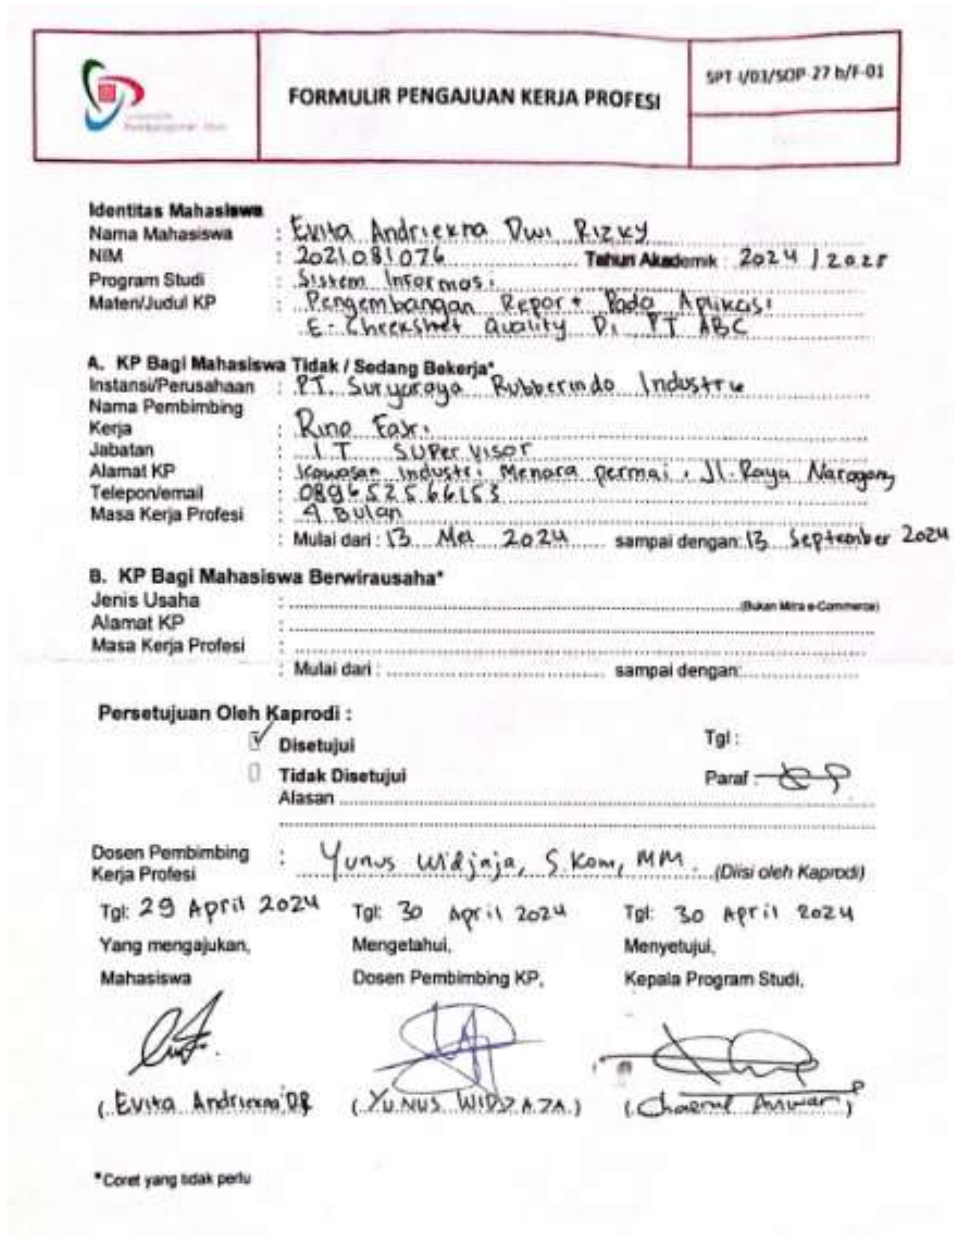 FORMULIR PENGAJUAN KERJA PROFESI
SPT-I/03/SOP-27 b/F-01
Identitas Mahasiswa
Nama Mahasiswa : Evita Andriexna Dwi Rizky
NIM : 2021081076 Tahun Akademik : 2024 / 2025
Program Studi : Sistem Informasi
Materi/Judul KP : Pengembangan Report Pada Aplikasi
E-Checkshet Quality Di PT ABC
A. KP Bagi Mahasiswa Tidak / Sedang Bekerja*
Instansi/Perusahaan : PT. Suryaraya Rubberindo Industrie
Nama Pembimbing
Kerja : Rino Fasri
Jabatan : IT Supervisor
Alamat KP : Kawasan Industri Menara Permai, Jl. Raya Narogong
Telepon/email : 089652566153
Masa Kerja Profesi : 4 Bulan
: Mulai dari : 13 Mei 2024 sampai dengan: 13 September 2024
B. KP Bagi Mahasiswa Berwirausaha*
Jenis Usaha : (Bukan Mitra e-Commerce)
Alamat KP :
Masa Kerja Profesi :
: Mulai dari : sampai dengan:
Persetujuan Oleh Kaprodi :
Disetujui Tgl :
Tidak Disetujui Paraf :
Alasan
Dosen Pembimbing : Yunus Widjaja, S.Kom, MM. (Diisi oleh Kaprodi)
Kerja Profesi
Tgl: 29 April 2024 Tgl: 30 April 2024 Tgl: 30 April 2024
Yang mengajukan, Mengetahui, Menyetujui,
Mahasiswa Dosen Pembimbing KP, Kepala Program Studi,
(Evita Andriexna DR (YUNUS WIDJAJA) (Chaerul Anwar)
*Coret yang tidak perlu